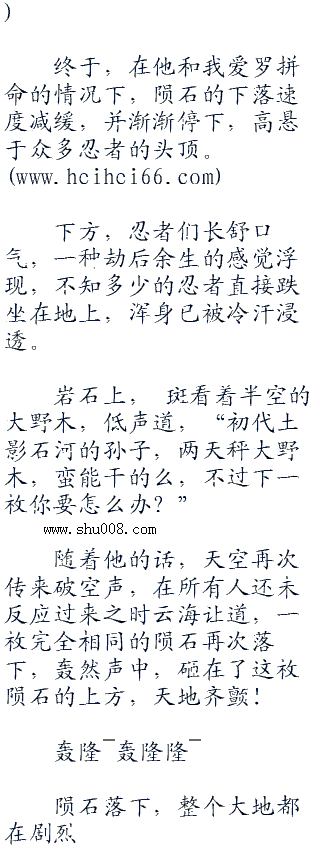 )
终于，在他和我爱罗拼
命的情况下，陨石的下落速
度减缓，并渐渐停下，高悬
于众多忍者的头顶。
(www.hcihci66.com)
下方，忍者们长舒口
气，一种劫后余生的感觉浮
现，不知多少的忍者直接跌
坐在地上，浑身已被冷汗浸
透。
岩石上， 斑看着半空的
大野木，低声道，“初代土
影石河的孙子，两天秤大野
木，蛮能干的么，不过下一
枚你要怎么办？”
www.shu008.com
随着他的话，天空再次
传来破空声，在所有人还未
反应过来之时云海让道，一
枚完全相同的陨石再次落
下，轰然声中，砸在了这枚
陨石的上方，天地齐颤！
轰隆¯轰隆隆¯
陨石落下，整个大地都
在剧烈